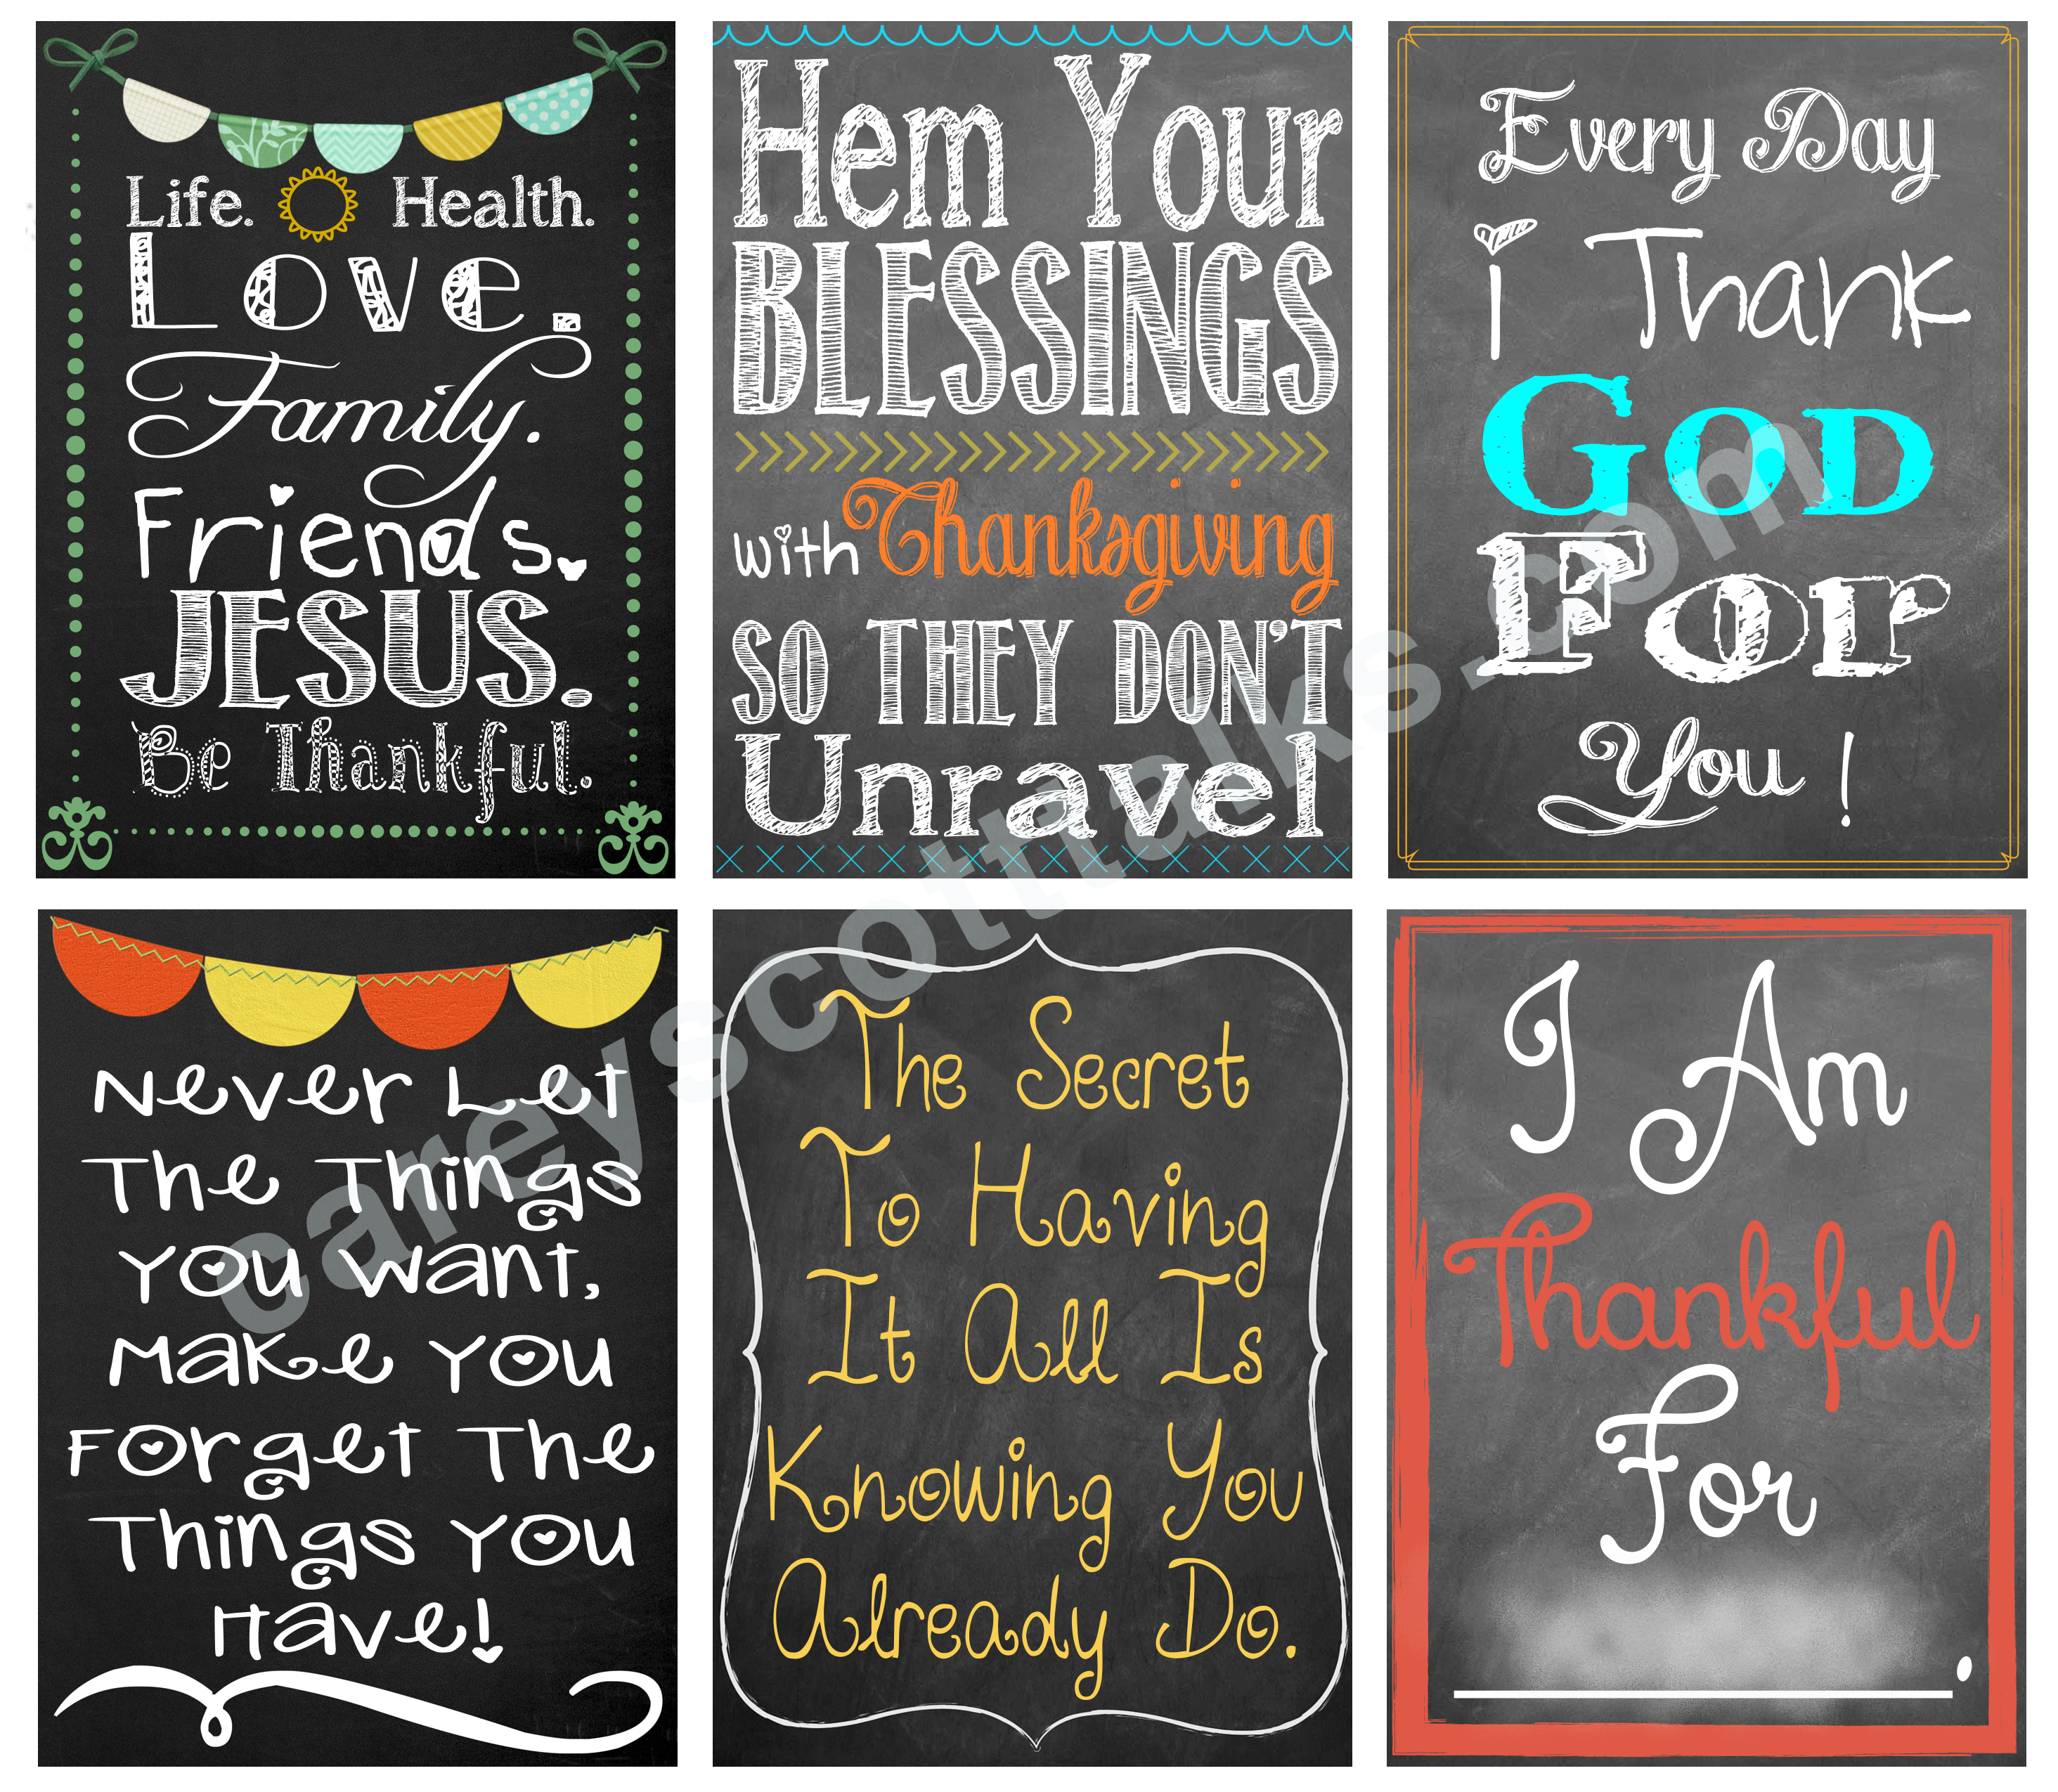 Life. Health.
Love.
Family.
Friends.
JESUS.
Be Thankful.
Hem Your
BLESSINGS
with Thanksgiving
SO THEY DON'T
Unravel
Every Day
i Thank
GOD
For
You!
Never Let
The Things
You Want,
Make You
Forget The
Things You
Have!
The Secret
To Having
It All Is
Knowing You
Already Do.
I Am
Thankful
For
.
careyscotttalks.com